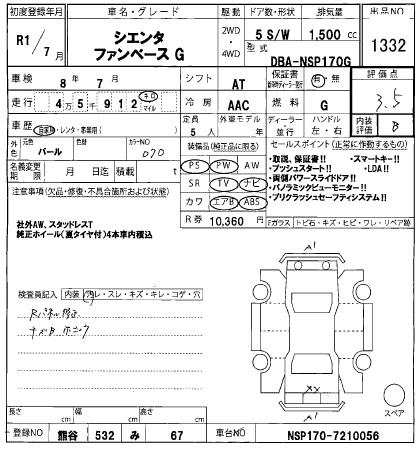 初度登録年月 車名・グレード 駆動 ドア数・形状 排気量 出品NO
R1/7月 シエンタ ファンベース G 2WD・4WD 5 S/W 1,500 cc 1332
型式 DBA-NSP170G
車検 8年 7月 シフト AT 保証書 有・無 評価点 3.5
走行 4万5千912 キロ マイル 冷房 AAC 燃料 G
車歴 自家用・レンタ・事業用( ) 定員 5人 外車モデル 年 ディーラー 並行 ハンドル 左・右 内装 B
外色 元色 パール カラーNO 070 装備品(純正品に限る) セールスポイント(正常に動作するもの)
名義変更期限 月 日迄 積載 t PS PW AW
・取説、保証書!! ・スマートキー!!
・プッシュスタート!! ・LDA!!
注意事項(欠品・修復・不具合箇所および状態) SR TV ナビ
・両側パワースライドドア!!
・パノラミックビューモニター!!
・プリクラッシュセーフティシステム!!
カワ エアB ABS
社外AW、スタッドレスT
純正ホイール(裏タイヤ付)4本車内積込
R券 10,360円 Fガラス トビ石・キズ・ヒビ・ワレ・リペア跡
A1
検査員記入 内装 汚レ・スレ・キズ・キレ・コゲ・穴
A1
XX
スペア
長さ cm 幅 cm 高さ cm
登録NO 熊谷 532 み 67 車台NO NSP170-7210056